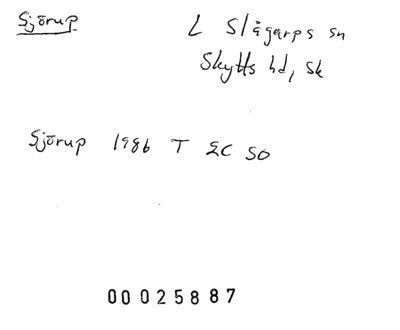 Sjörup L Slågarps sn
Skytts hd, Sk
Sjörup 1986 T ÆC SO
00025887